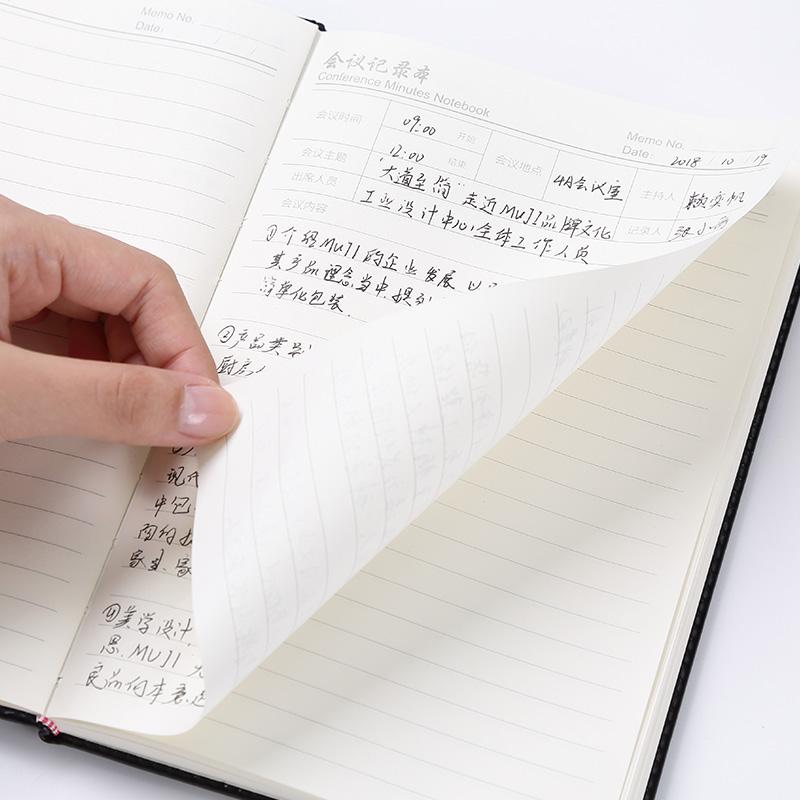 Memo No.
Date:
会议记录本
Conference Minutes Notebook
Memo No.
Date: 2018 / 10 / 19
会议时间 09:00 开始
12:00 结束 会议地点 4A会议室 主持人
会议主题 "大道至简"走近MUJI品牌文化
出席人员 工业设计中心全体工作人员 记录人 张小雨
会议内容
①介绍MUJI的企业发展
其产品理念当中,提到
简单化包装.
②产品类别
厨房
现代
中包
家具、家
④美学设计,
思.MUJI
良品何本意